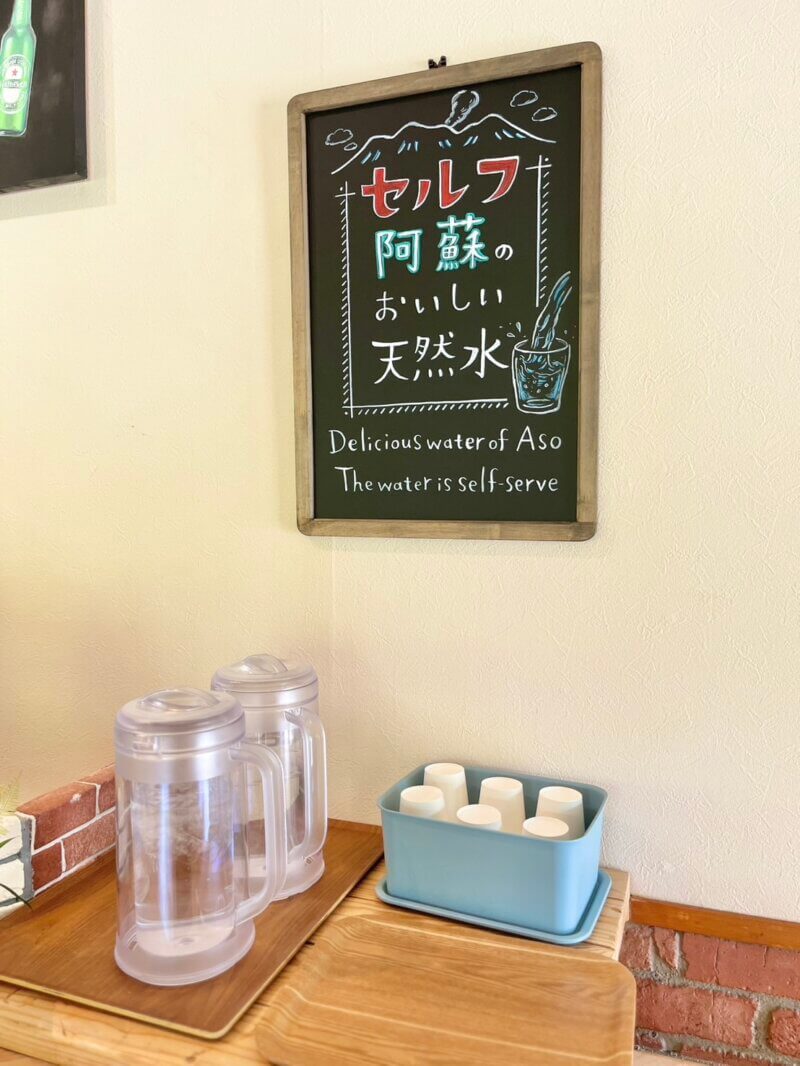 セルフ
阿蘇の
おいしい
天然水
Delicious water of Aso
The water is self-serve